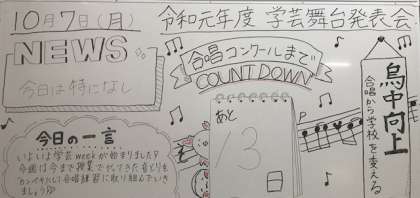 10月7日(月)
令和元年度 学芸舞台発表会
NEWS
今日は特になし
合唱コンクールまで
COUNT DOWN
あと
13
日
烏中向上
合唱から学校を変える
今日の一言
いよいよ学芸weekが始まりました!?
今週は今まで授業でやってきた音とりを
カンペキにして合唱練習に取り組んでいき
ましょう